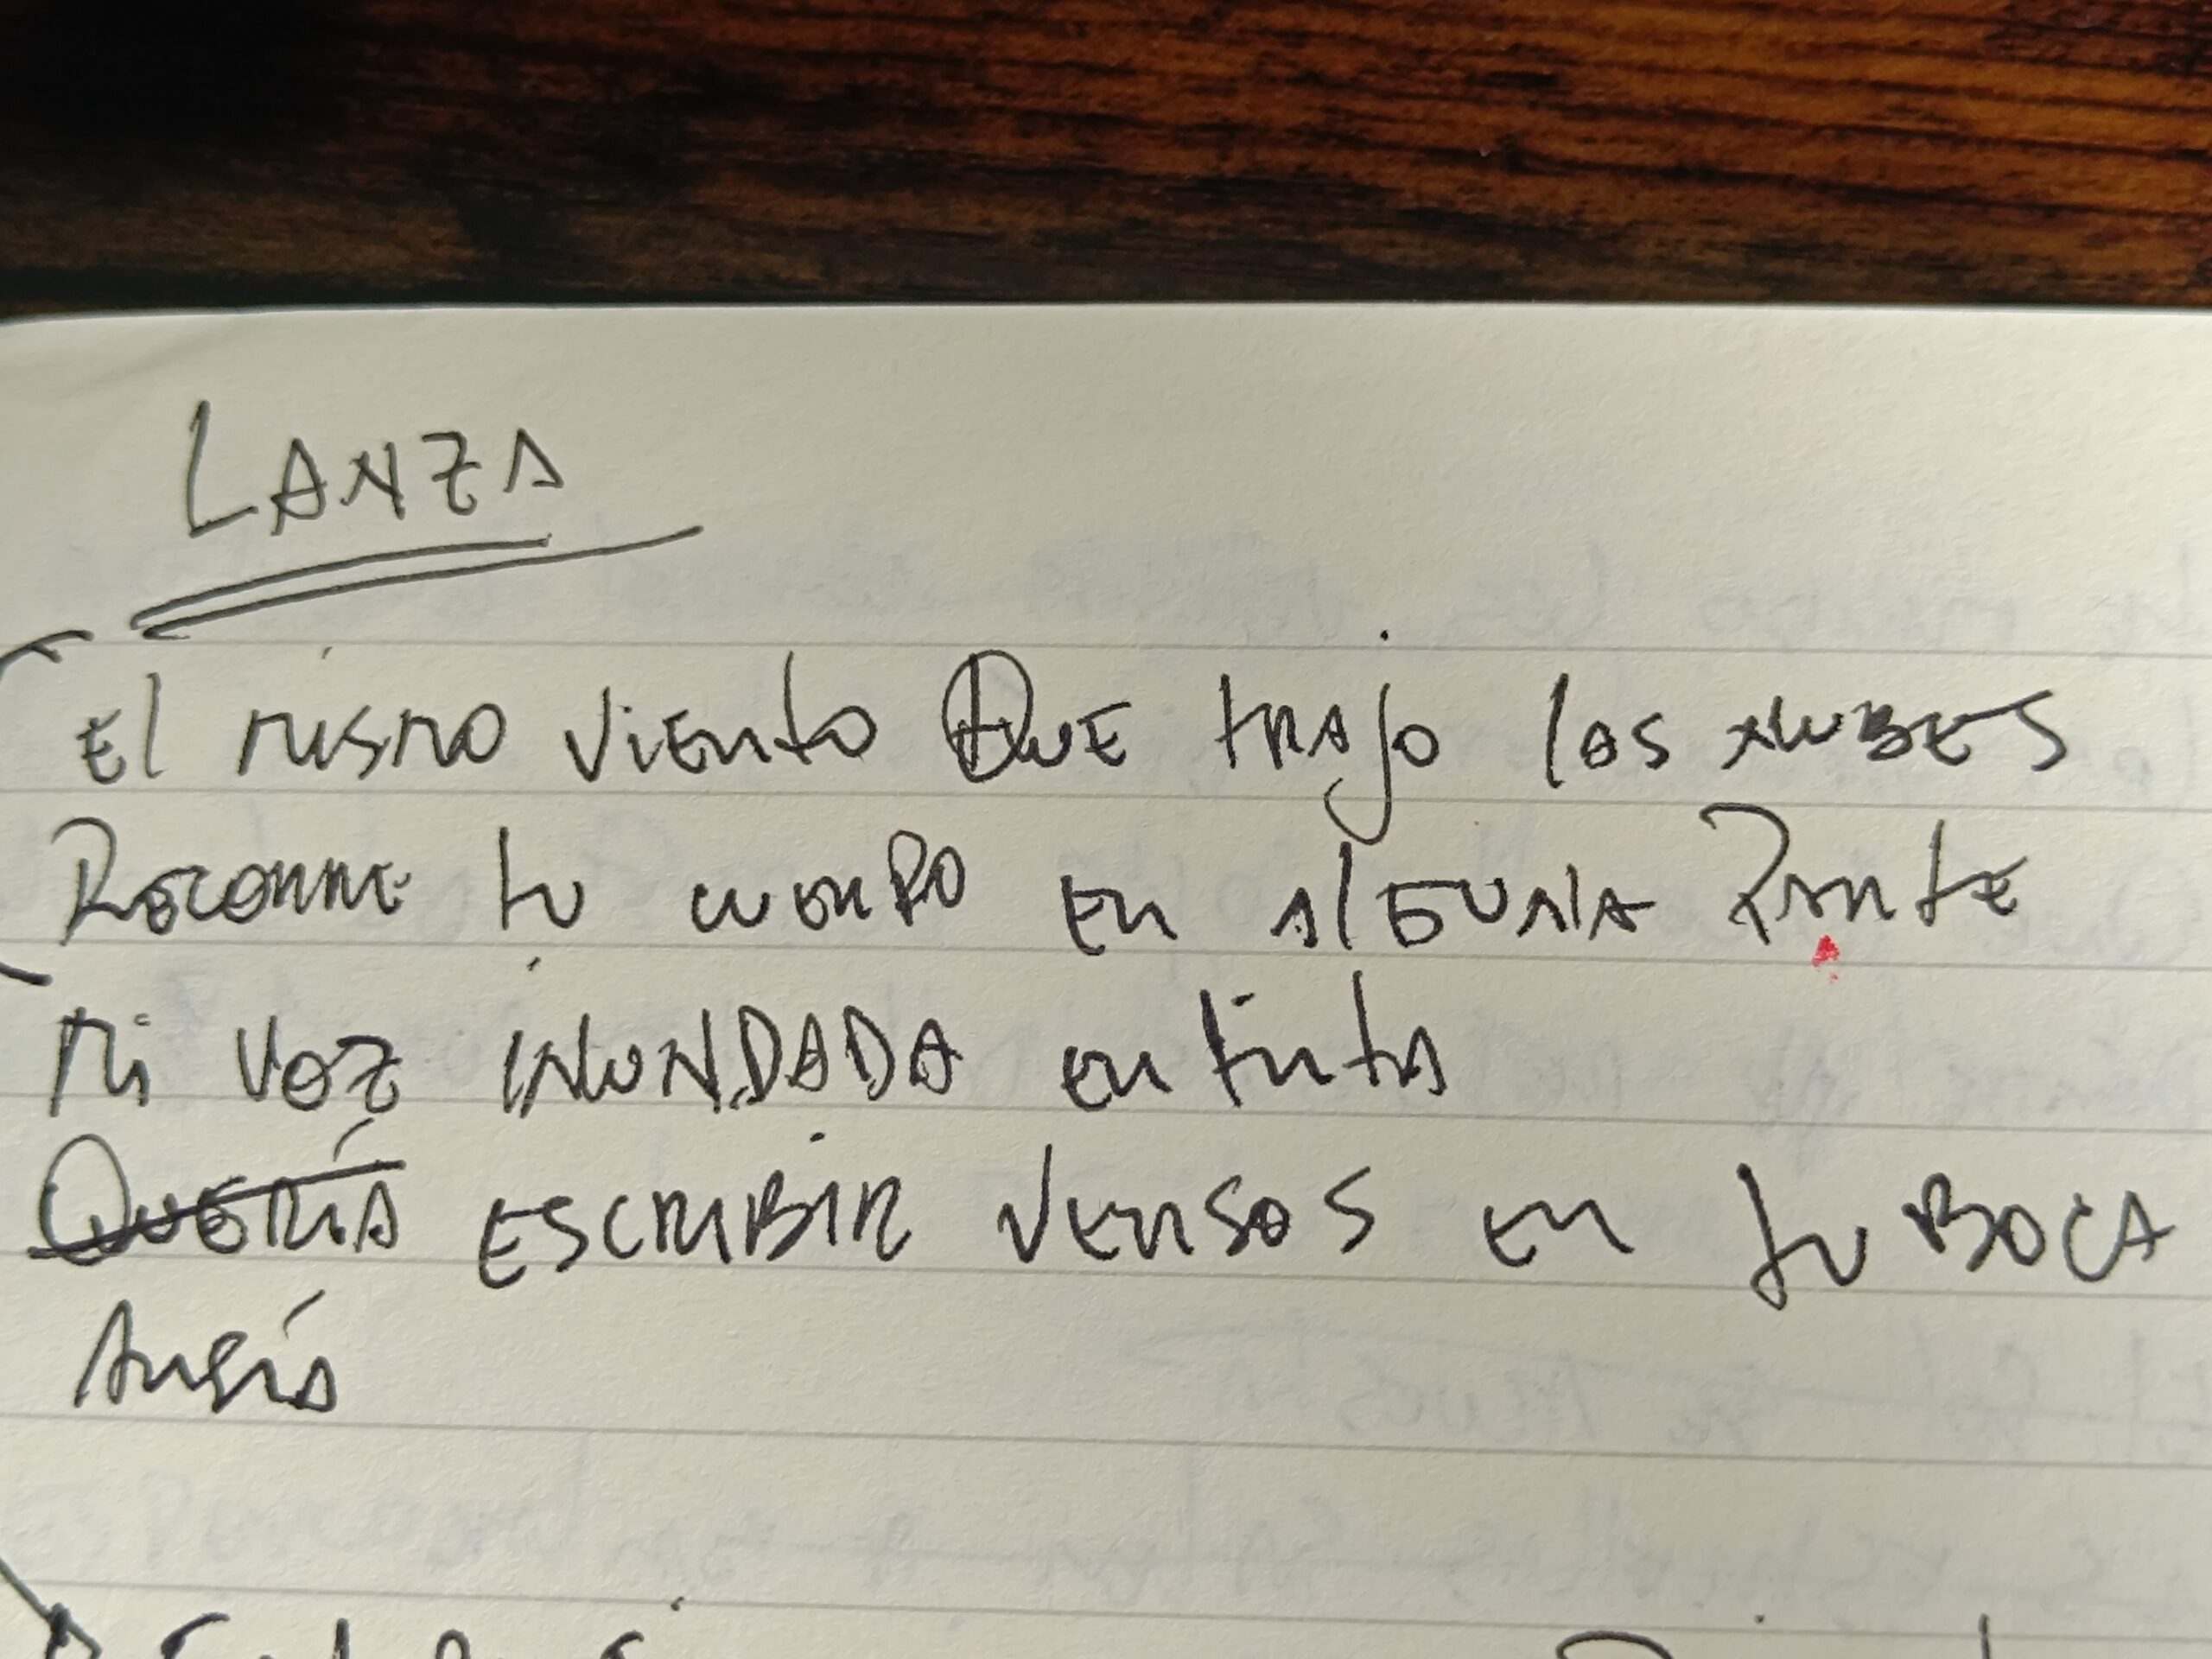 LANZA
El mismo viento que trajo las nubes
Recorre tu cuerpo en alguna parte
Mi voz inundada en tinta
Quería escribir versos en tu boca
Ansía